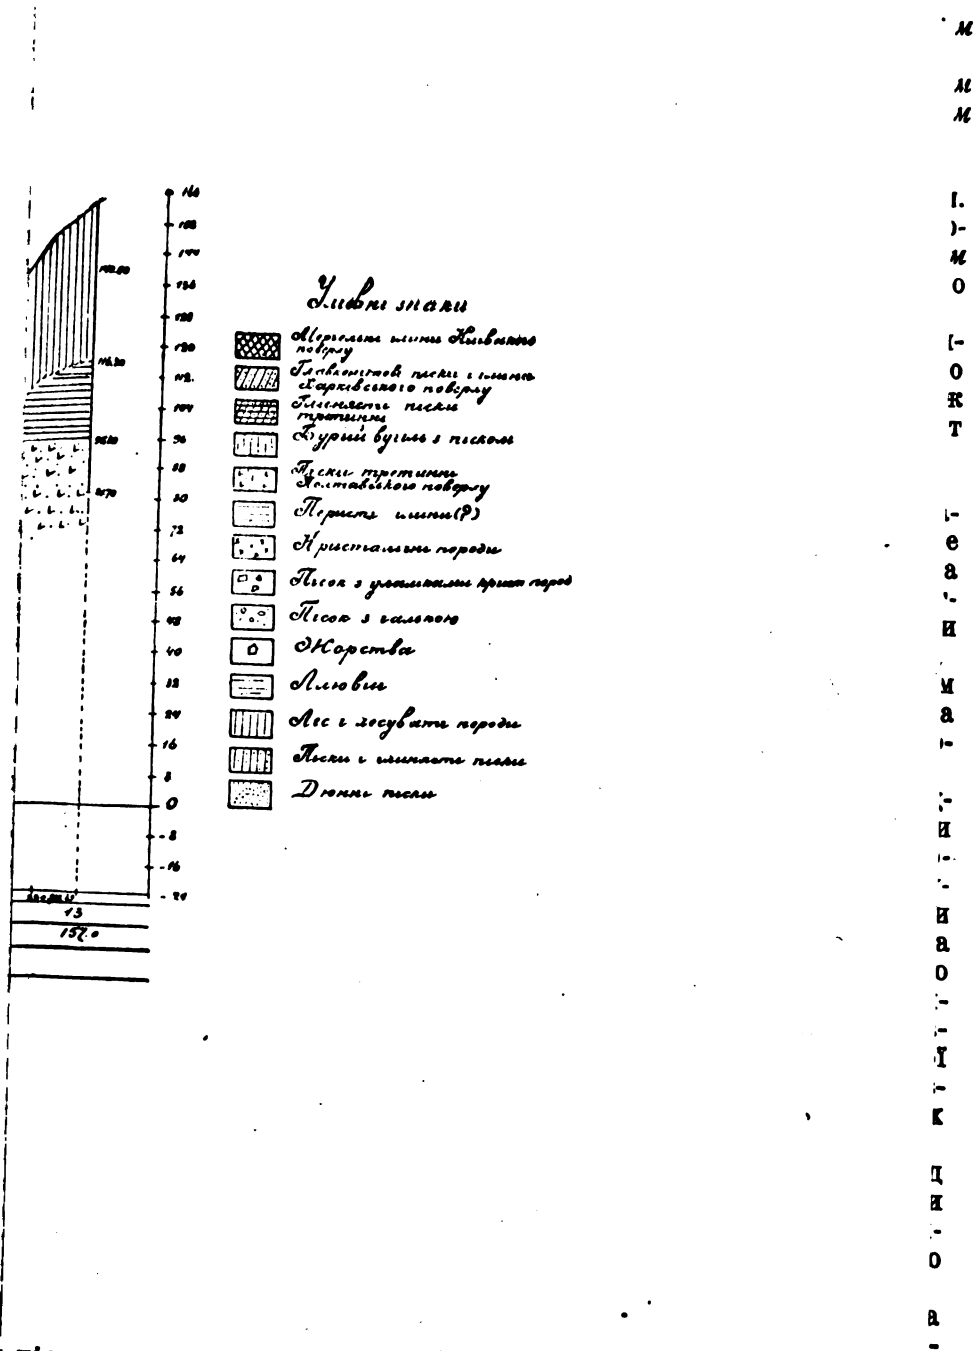 160
152
144
136
128
120
112
104
96
88
80
72
64
56
48
40
32
24
16
8
0
- 8
- 16
- 24
116.20
13
157.0
Умовні знаки
Мергельні глини Київського
поверху
Глауконітові піски і глини
Харківського поверху
Глинясті піски
третинні
Бурий вугіль з піском
Піски третинні
Полтавського поверху
глини (?)
Кристалічні породи
Пісок з уламками крист. пород
Пісок з галькою
Жорства
Алювій
Лес і лесуваті породи
Піски і глинясті піски
Дюнні піски
м
м
м
І.
)-
м
о
[-
о
к
т
е
а
и
м
а
и
и
а
о
-
ї
к
ц
и
о
а